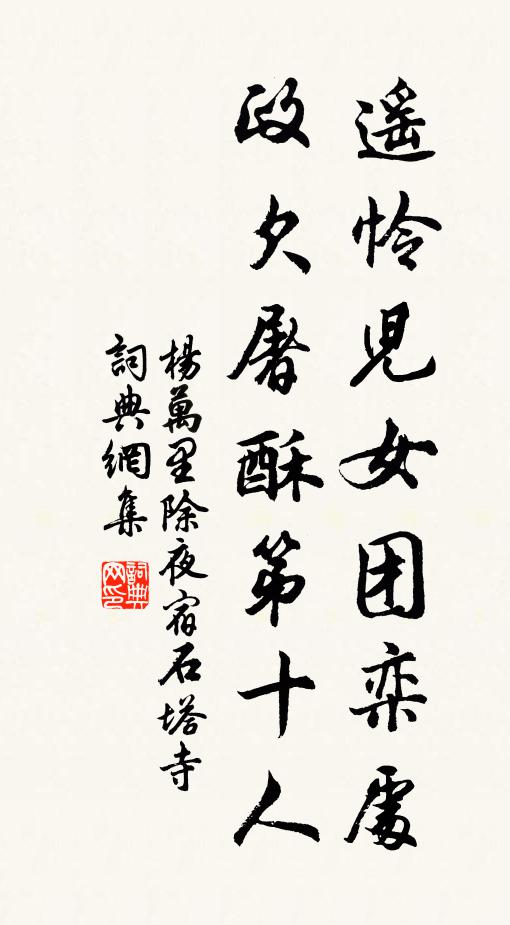 遥怜児女团栾處
政欠屠酥第十人
楊萬里除夜宿石塔寺
詞典網集
詞典网印